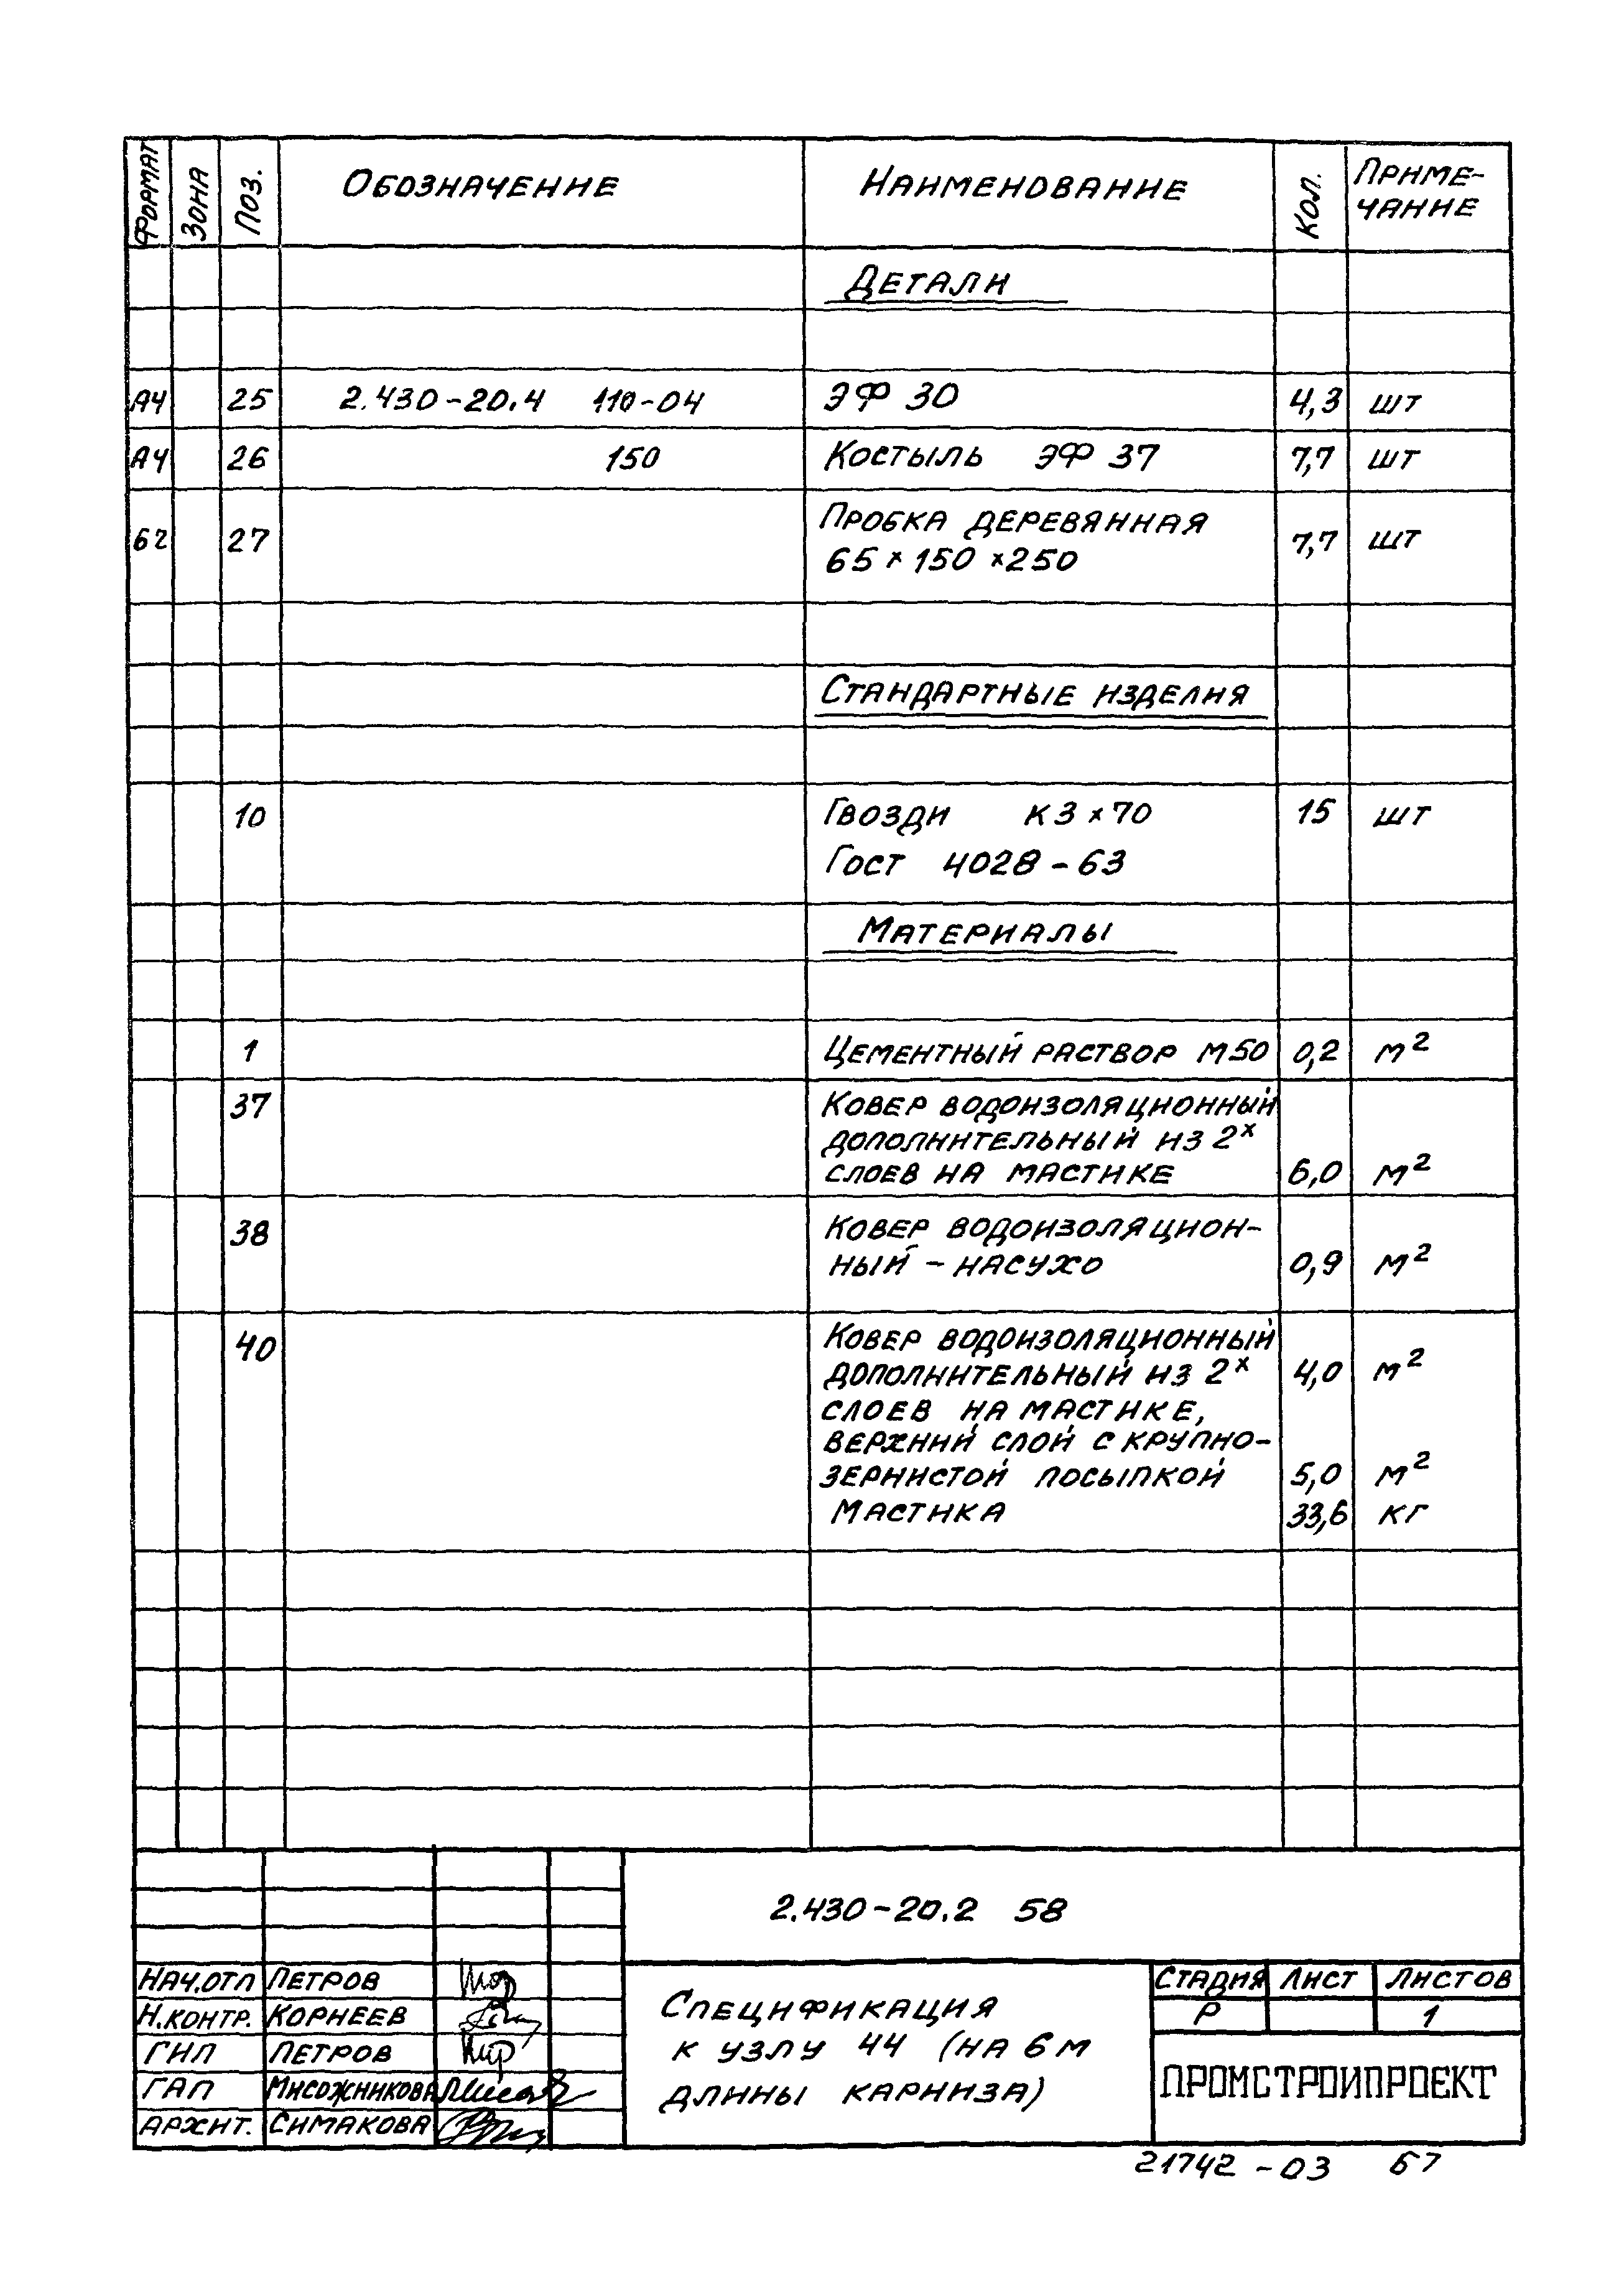 Формат Зона Поз. Обозначение Наименование Кол. Приме-
чание
Детали
А4 25 2.430-20.4 110-04 ЭФ 30 4,3 шт
А4 26 150 Костыль ЭФ 37 7,7 шт
Пробка деревянная
БЧ 27 65×150×250 7,7 шт
Стандартные изделия
10 Гвозди К 3×70 15 шт
Гост 4028-63
Материалы
1 Цементный раствор М50 0,2 м²
37 Ковер водоизоляционный
дополнительный из 2х
слоев на мастике 6,0 м²
38 Ковер водоизоляцион-
ный - насухо 0,9 м²
40 Ковер водоизоляционный
дополнительный из 2х 4,0 м²
слоев на мастике,
верхний слой с крупно-
зернистой посыпкой 5,0 м²
Мастика 33,6 кг
2.430-20.2 58
Нач.отл Петров
Н.контр. Корнеев
ГИП Петров
ГАП Мисожникова
Архит. Симакова
Спецификация
к узлу 44 (на 6 м
длины карниза)
Стадия Лист Листов
Р 1
ПРОМСТРОЙПРОЕКТ
21742-03 67